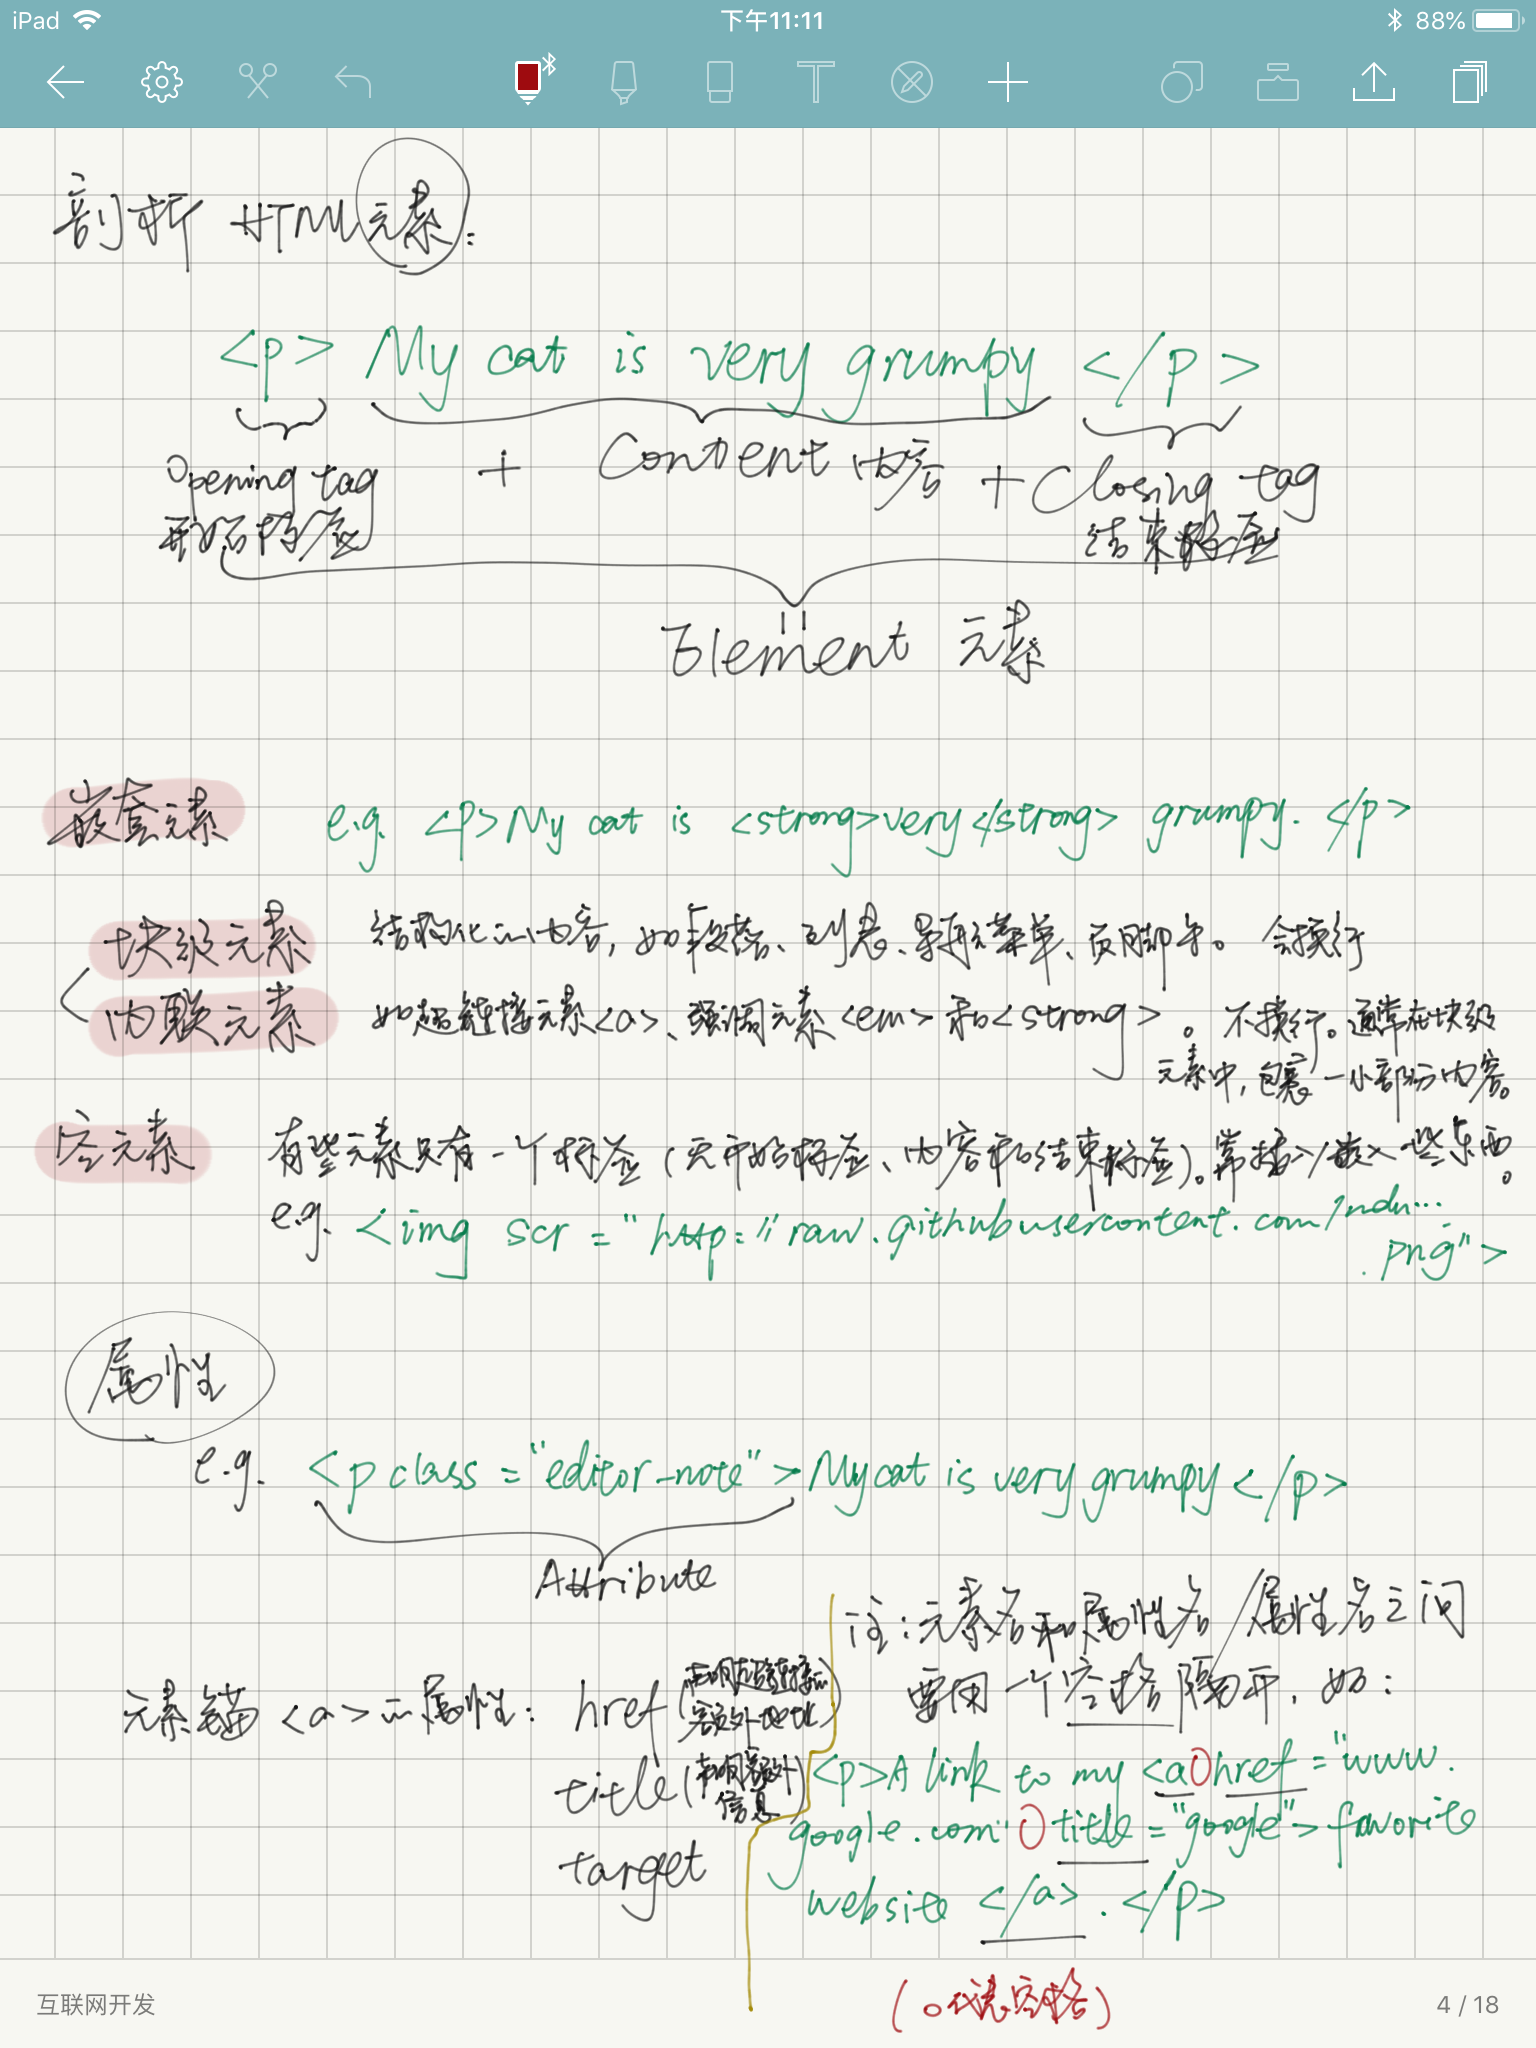 iPad 下午11:11 88%
剖析 HTML元素:
<p> My cat is very grumpy </p>
Opening tag + Content 内容 + Closing tag
开始标签 结束标签
Element 元素
嵌套元素 e.g. <p>My cat is <strong>very</strong> grumpy. </p>
块级元素 结构化的内容, 如段落、列表、导航菜单、页脚等。 会换行
内联元素 如超链接元素<a>、强调元素<em>和<strong>。不换行。通常在块级
元素中, 包裹一小部分内容。
空元素 有些元素只有一个标签(无开始标签、内容和结束标签)。常插入/嵌入一些东西。
e.g. <img scr = "http://raw.githubusercontent.com/mdn...
.png">
属性
e.g. <p class="editor-note">My cat is very grumpy</p>
Attribute
元素锚<a>的属性: href (声明超链接的
额外地址)
title (声明额外
信息)
target
注:元素名和属性名/属性名之间
要用一个空格隔开, 如:
<p>A link to my <a href="www.
google.com" title="google">favorite
website </a>.</p>
(o代表空格)
互联网开发 4 / 18